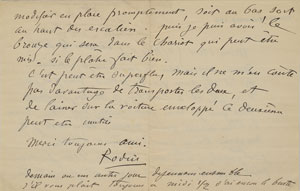 modèle en place promptement soit au bas soit
au haut des escaliers. puis je puis avoir le
bronze qui sera dans le chariot qui peut être
mis. si le plâtre fait bien.
C'est peut être superflu, mais il ne m'en coûte
pas davantage de transporter les deux, et
de laisser sur la voiture enveloppé le deuxième
peut être inutile
Merci toujours ami.
Rodin
demain ou un autre jour déjeunons ensemble
s'il vous plait toujours à midi